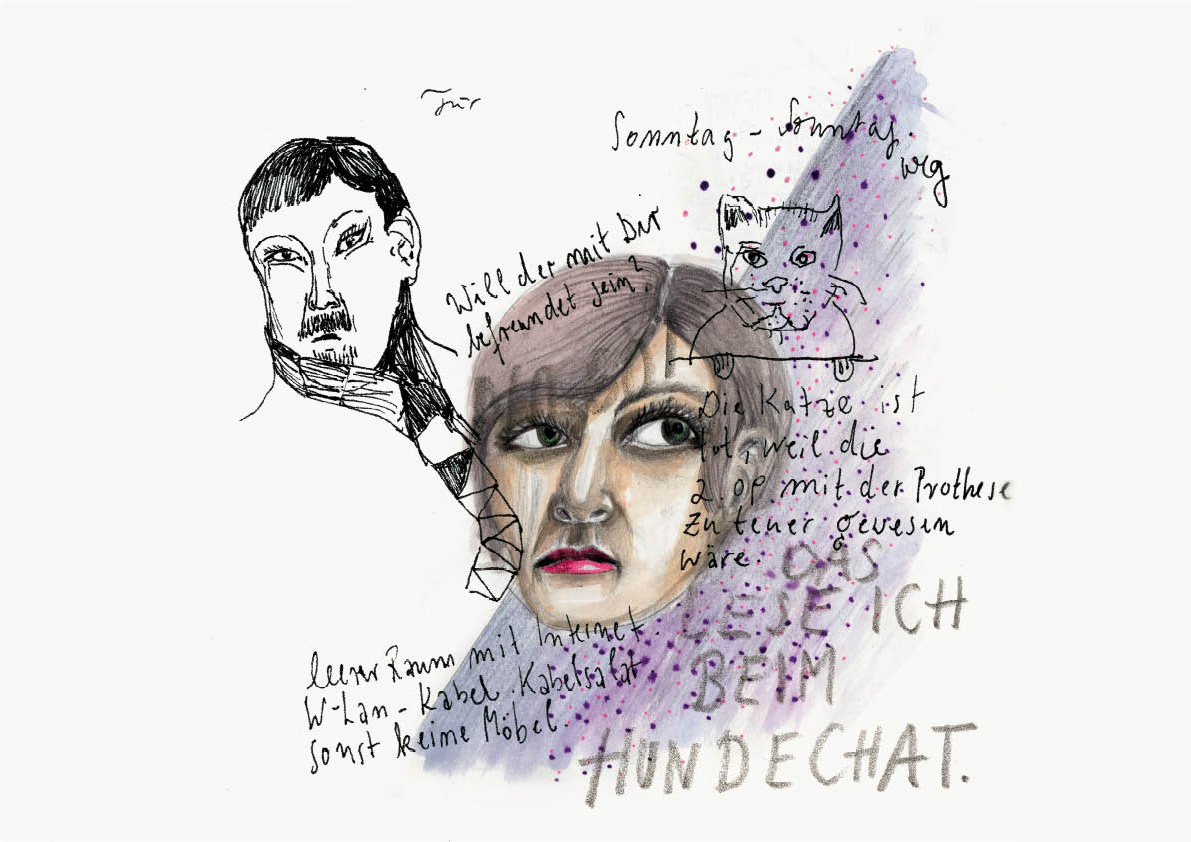 für
Sonntag - Sonntag.
weg
Will der mit Dir
befreundet sein?
Die Katze ist
tot, weil die
2. op mit der Prothese
zu teuer gewesen
wäre.
DAS
LESE ICH
BEIM
HUNDECHAT.
leerer Raum mit Internet.
W-Lan-Kabel. Kabelsalat.
Sonst keine Möbel.